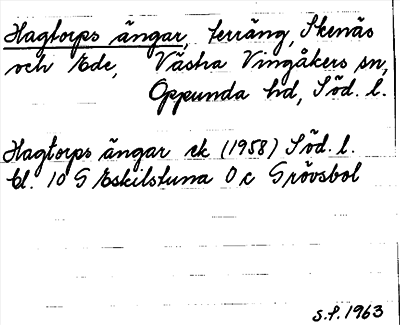 Hagtorps ängar, terräng, Skenäs
och Ede, Västra Vingåkers sn,
Oppunda hd, Söd. l.
Hagtorps ängar ek (1958) Söd. l.
bl. 10 G Eskilstuna 0 c Grövsbol
S.f. 1963